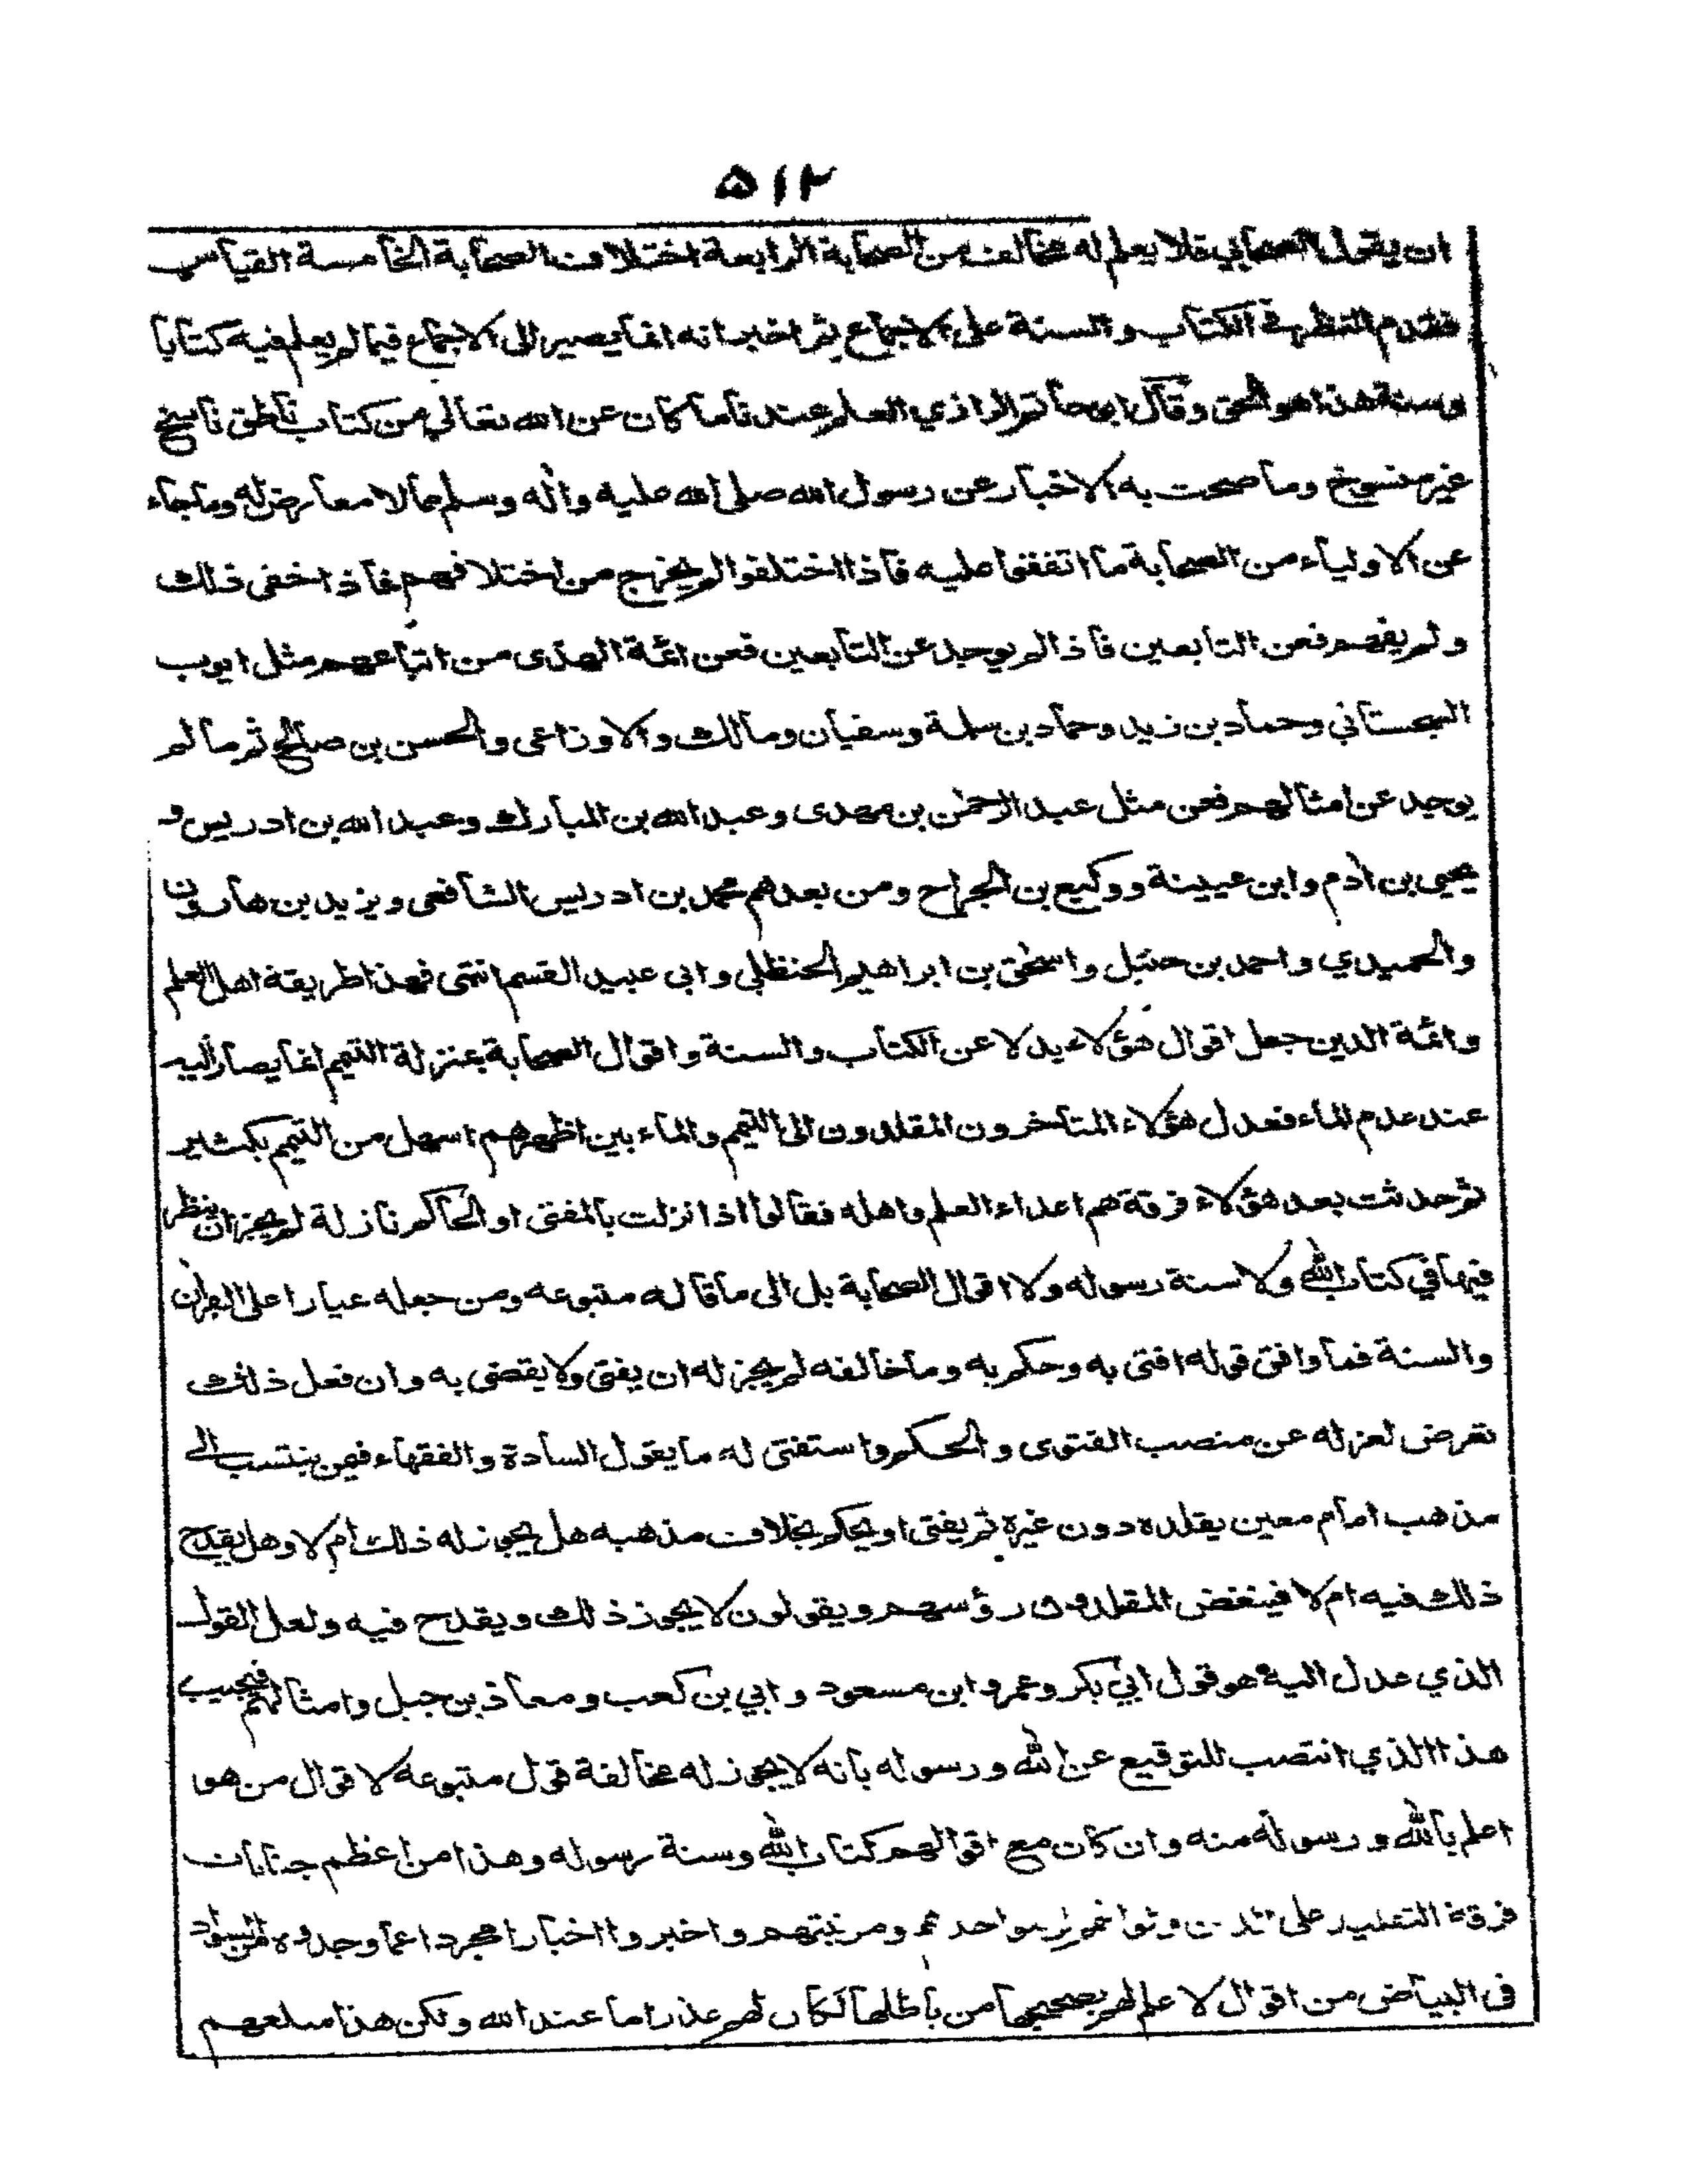 ۵۱۲
ان يقول الصحابي فلا يعلم له مخالف من الصحابة الرابعة اختلاف الصحابة الخامسة القياس
فقدم النظر في الكتاب والسنة على الاجماع ثم اخبر انه انما يصير الى الاجماع فيما لم يعلم فيه كتابا
وسنة هذا هو الحق وقال ابو حاتم الرازي العلم عندنا ما كان عن الله تعالى من كتاب ناطق ناسخ
غير منسوخ وما صحت به الاخبار عن رسول الله صلى الله عليه واله وسلم مما لا معارض له وما جاء
عن الاولياء من الصحابة ما اتفقوا عليه فاذا اختلفوا لم يخرج من اختلافهم فاذا خفى ذلك
ولم يفهم فعن التابعين فاذا لم يوجد عن التابعين فعن ائمة الهدى من اتباعهم مثل ايوب
السجستاني وحماد بن زيد وحماد بن سلمة وسفيان ومالك والاوزاعى والحسن بن صالح ثم ما لم
يوجد عن امثالهم فعن مثل عبد الرحمن بن مهدى وعبد الله بن المبارك وعبد الله بن ادريس و
يحيى بن ادم وابن عيينة ووكيع بن الجراح ومن بعدهم محمد بن ادريس الشافعى ويزيد بن هارون
والحميدي واحمد بن حنبل واسحق بن ابراهيم الحنظلي وابى عبيد القسم انتهى فهذا طريقة اهل العلم
وائمة الدين جعل اقوال هؤلاء بدلا عن الكتاب والسنة واقوال الصحابة بمنزلة التيمم انما يصار اليه
عند عدم الماء فعدل هؤلاء المتاخرون المقلدون الى التيمم والماء بين اظهرهم اسهل من التيمم بكثير
ثم حدثت بعد هؤلاء فرقة هم اعداء العلم واهله فقالوا اذا نزلت بالمفتى او الحاكم نازلة لم يجز ان ينظر
فيها في كتاب الله ولا سنة رسوله ولا اقوال الصحابة بل الى ما قاله متبوعه ومن جعله عيارا على القران
والسنة فما وافق قوله افتى به وحكم به وما خالفه لم يجز له ان يفتى ولا يقضى به وان فعل ذلك
تعرض لعزله عن منصب الفتوى والحكم واستفتى له ما يقول السادة والفقهاء فيمن ينتسب الى
مذهب امام معين يقلده دون غيره ثم يفتى او يحكم بخلاف مذهبه هل يجوز له ذلك ام لا وهل يقدح
ذلك فيه ام لا فينغض المقلدون رؤسهم ويقولون لا يجوز ذلك ويقدح فيه ولعل القول
الذي عدل اليه هو قول ابي بكر وعمر وابن مسعود وابي بن كعب ومعاذ بن جبل وامثالهم فيجيب
هذا الذي انتصب للتوقيع عن الله ورسوله بانه لا يجوز له مخالفة قول متبوعه لاقوال من هو
اعلم بالله ورسوله منه وان كان مع اقوالهم كتاب الله وسنة رسوله وهذا من اعظم جنايات
فرقة التقليد على ومرتبتهم واخبروا اخبارا مجردا عما وجدوه من السواد
فى البياض من اقوال لا علم لهم بصحيحها من باطلها لكان لهم عذر اما عند الله ولكن هذا مبلغهم